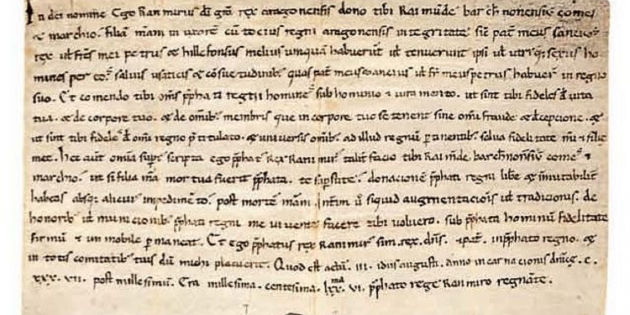 In dei nomine. Ego Ranimirus dei gra rex aragonensis dono tibi Raimunde barchinonensium comes
& marchio. filiam meam in uxore cu tocius regni aragonensis integritate. sicut pater meus sancius
rex ul fratres mei petrus & ildefonsus melius umquam habuerunt ul tenuerunt ipsi ul utriusque sexus ho
mines per eos. salvis usaticis & consuetudinibus quas pater meus sancius ul frater meus petrus habuerunt in regno
suo. Et comendo tibi oms pphati regni homines sub hominio & iura mento. ut sint tibi fideles de vita
tua. & de corpore tuo. & de omibus membris que in corpore tuo se tenent. sine omi fraude & decepcione. &
ut sint tibi fideles de omi regno pritulato. & universis omibus ad illud regnum pertinentibus. salva fidelitate mi & filie
mee. Hec autem omia supra scripta ego pphatus rex Ranimirus taliter facio tibi Raimunde barchinonensium comes &
marchio. ut si filia mea mortua fuerit pphata. te superstite. donacionem pphati regni libere & immutabiliter
habeas absque alicuius impedimento. post mortem meam. Interim u siquid augmentacionis ul tradicionis de
honoribus ul municionibus pphati regni me vivente facere tibi voluero. sub pphata hominum fidelitate
firmu & in mobile permaneat. Et ego pphatus rex Ranimirus sim rex dns. & pater. in pphato regno. &
in totis comitatibus tuis dum michi placuerit. Quod est actum. III. idus augusti. anno incarnacionis dnice. c.
xxx. vii. post millesimum. Era millesima. centesima. lxxma. v. pphato rege Ranimiro regnante.